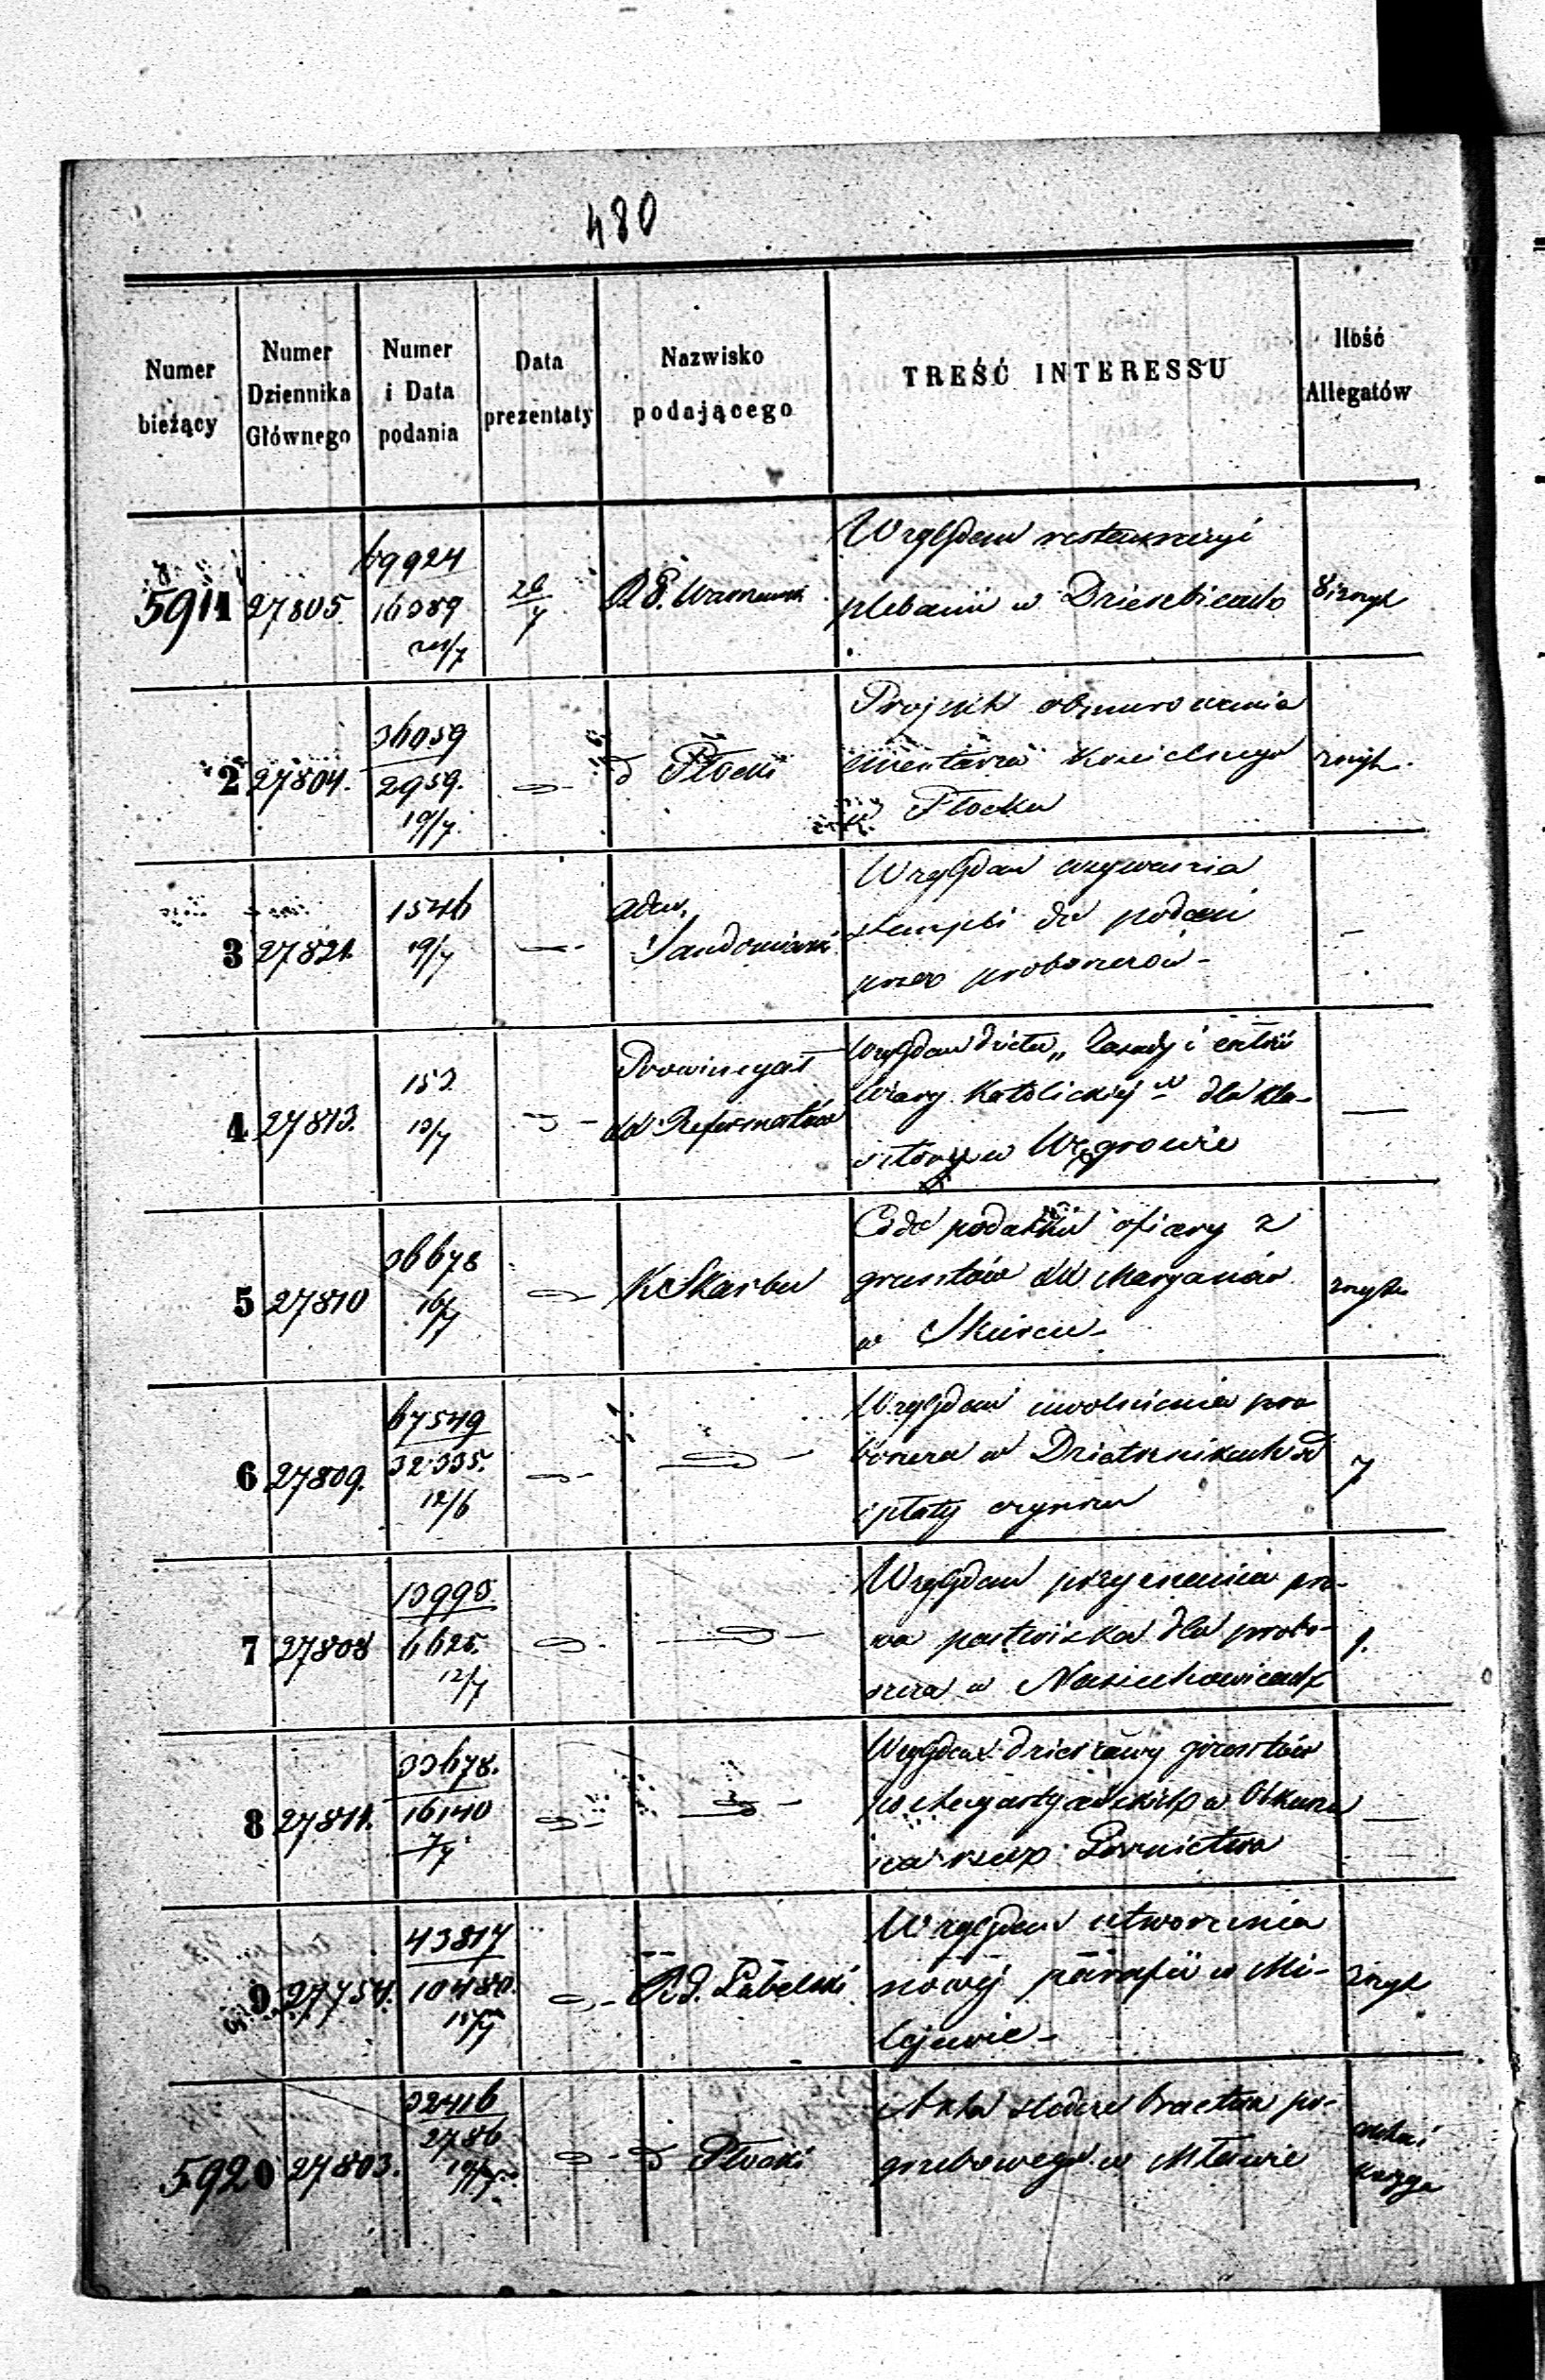 480
Numer bieżący
Numer Dziennika Głównego
Numer i Data podania
Data prezentaty
Nazwisko podającego
TREŚĆ INTERESSU
Ilość Allegatów
5911 27805. 69924
16389
26/7
Względem restauracyi
plebanii w
2 27804. 36059
2959.
19/7
d Płocki
Projekt obmurowania
cmentarza Kościelnego
w Płocku
3 27821. 1546
19/7
Adm.
Sandomierski
Względem używania
stempli do podań
przez proboszczów
4 27813. 153
13/7
Prowincyał
XX Reformatów
Względem dzieła „Zasady i całość
Wiary Katolickiej" dla kla-
sztoru w Węgrowie
5 27810 36678
16/7
K Skarbu
Co do podatku ofiary z
gruntów XX Maryanów
w Skurcu
6 27809. 67549
32335.
12/6
Względem uwolnienia pro-
boszcza w od
opłaty czynszu
7
7 27808 13993.
6625.
12/7
Względem przyznania pra-
wa pastwiska dla probo-
szcza w Nasiechowicach
1.
8 27811. 33678.
16140
7/7
Względem dzierżawy gruntów
po Augustyańskich w Olkuszu
na rzecz Górnictwa
9 27754. 43817
10480.
15/7
Rd. Lubelski
Względem utworzenia
nowej parafii w Mi-
lejowie
5920 27803. 32416
2786
19/7
d Płocki
Akta Bractwa po-
grzebowego w Mławie